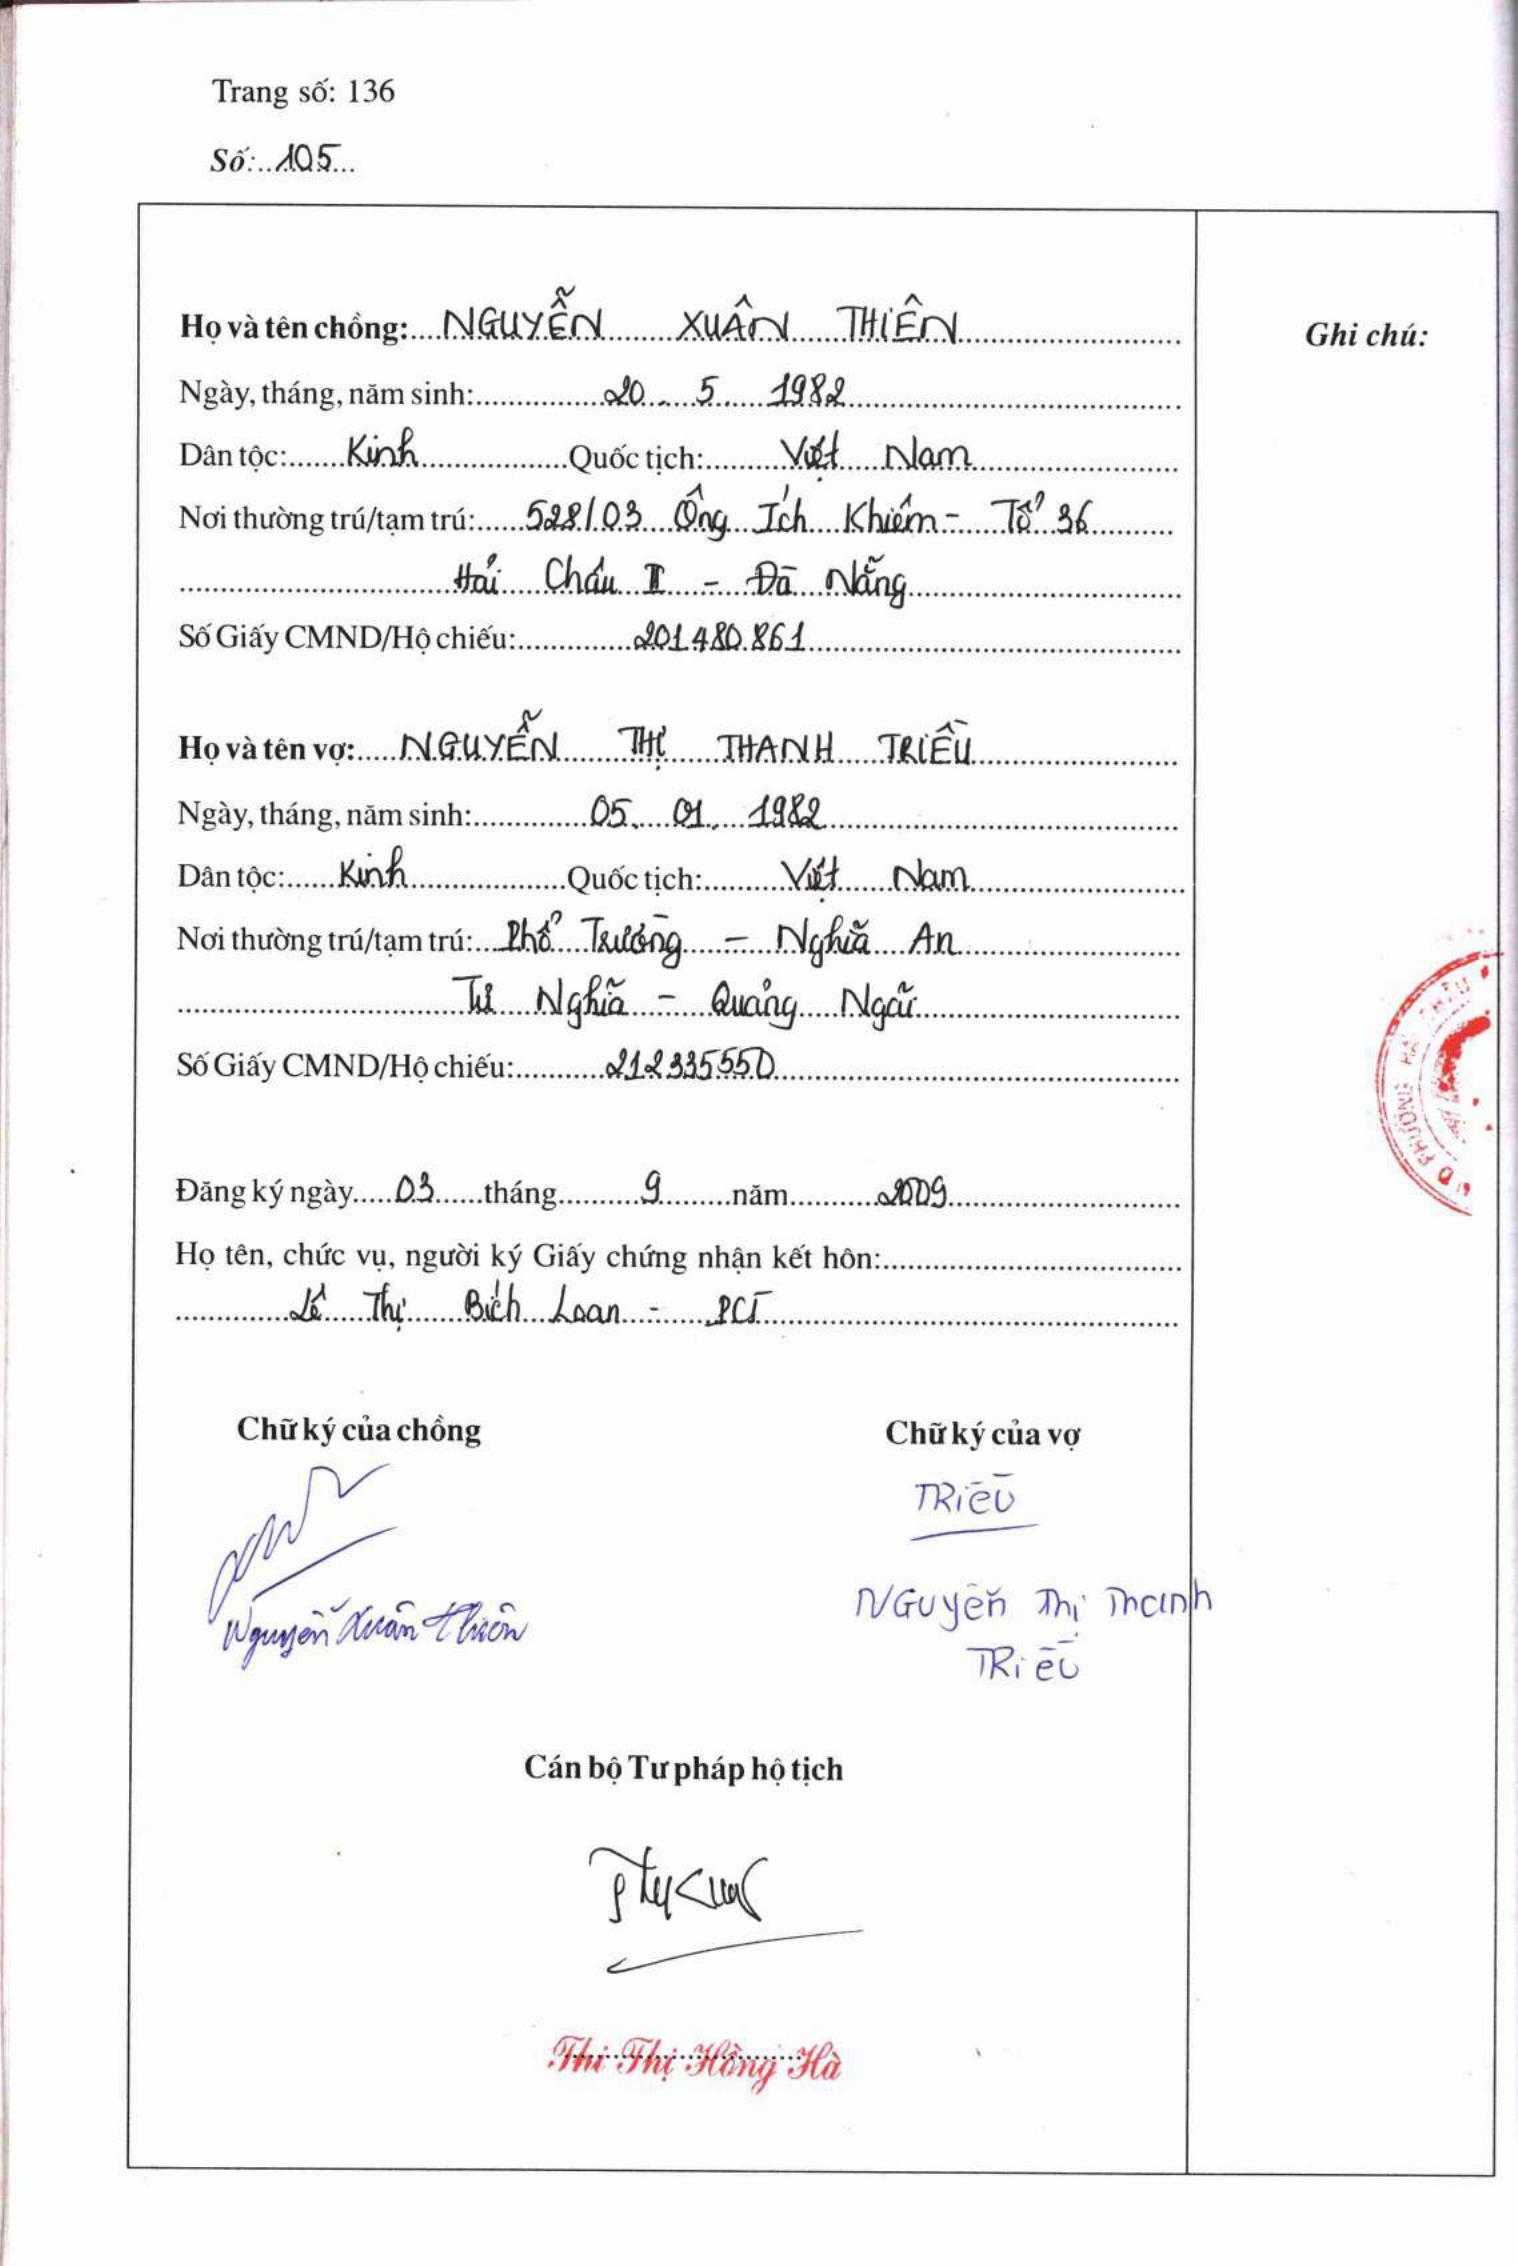 Trang số: 136
Số: 105
Họ và tên chồng: NGUYỄN XUÂN THIÊN
Ghi chú:
Ngày, tháng, năm sinh: 20 . 5 1982
Dân tộc: Kinh Quốc tịch: Việt Nam
Nơi thường trú/tạm trú: 528/03 Ông Ích Khiêm - Tổ 36
Hải Châu II - Đà Nẵng
Số Giấy CMND/Hộ chiếu: 201480861
Họ và tên vợ: NGUYỄN THỊ THANH TRIỀU
Ngày, tháng, năm sinh: 05. 01. 1982
Dân tộc: Kinh Quốc tịch: Việt Nam
Nơi thường trú/tạm trú: Phổ Trường - Nghĩa An
Tư Nghĩa - Quảng Ngãi
Số Giấy CMND/Hộ chiếu: 212335550
Đăng ký ngày 03 tháng 9 năm 2009
Họ tên, chức vụ, người ký Giấy chứng nhận kết hôn:
Lê Thị Bích Loan - PCT
Chữ ký của chồng
Chữ ký của vợ
TRIỀU
Nguyễn Xuân Thiên
NGUYỄN Thị Thanh
TRIỀU
Cán bộ Tư pháp hộ tịch
Thi Thị Hồng Hà